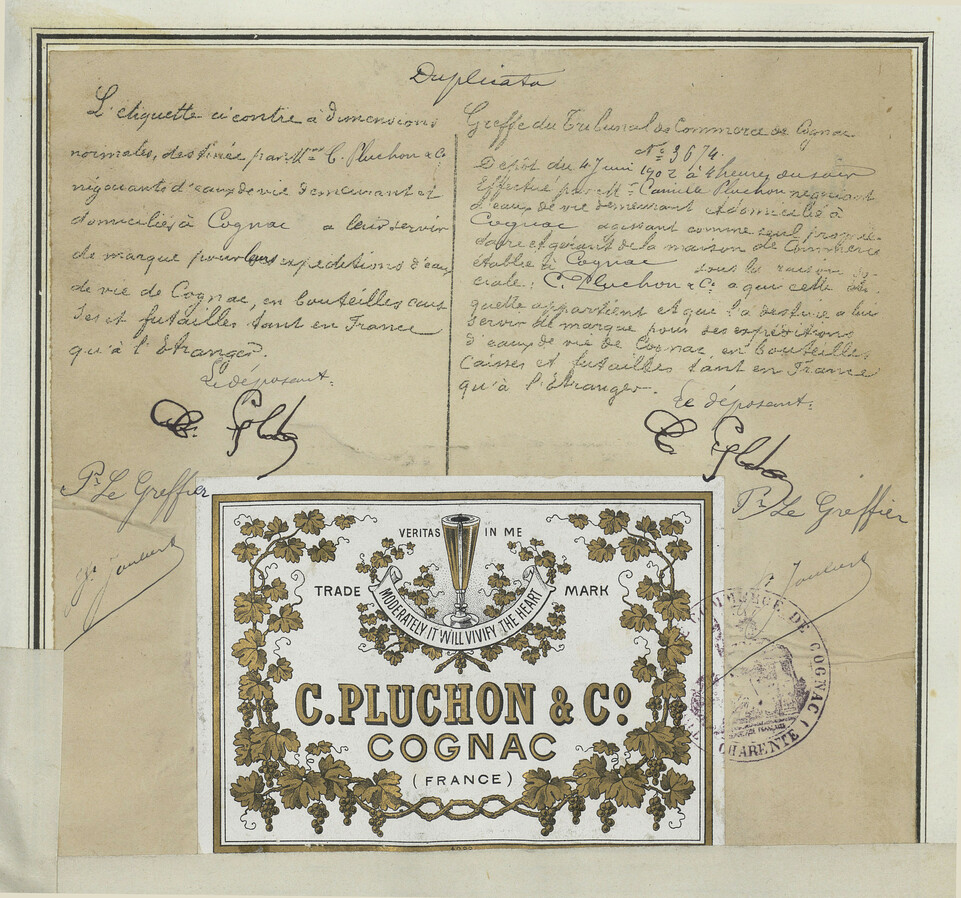 Duplicata
L'étiquette ci contre à dimensions
normales, destinée par Mrs C. Pluchon & Co
négociants d'eaux de vie demeurant et
domiciliés à Cognac a leur servir
de marque pour leurs expéditions d'eau
de vie de Cognac, en bouteilles cais
ses et futailles tant en France
qu'à l'Etranger.
Le déposant:
Pr Le Greffier
Greffe du Tribunal de Commerce de Cognac
No 3674.
Dépôt du 4 Juin 1902 à 4 heures du soir
Effectué par Mr Camille Pluchon négociant
d'eaux de vie demeurant et domicilié à
Cognac agissant comme seul proprié-
taire et gérant de la maison de Commerce
établie à Cognac sous la raison so-
ciale: C. Pluchon & Co a qui cette éti-
quette appartient et que l'a destine a lui
servir de marque pour ses expéditions
d'eaux de vie de Cognac, en bouteilles,
caisses et futailles tant en France
qu'à l'Etranger.
Le déposant:
Pr Le Greffier
VERITAS IN ME
TRADE MARK
MODERATELY IT WILL VIVIFY THE HEART
C. PLUCHON & Co.
COGNAC
(FRANCE)
COMMERCE DE COGNAC
CHARENTE